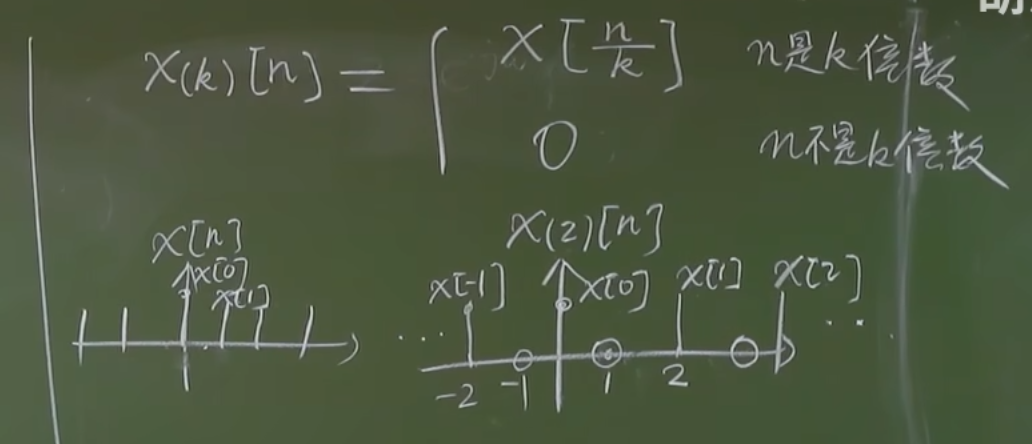 x(k)[n] = { x[n/k] n是k倍数
0 n不是k倍数
x[n]
x[0]
x[1]
x(2)[n]
... x[-1] x[0] x[1] x[2] ...
-2 -1 1 2